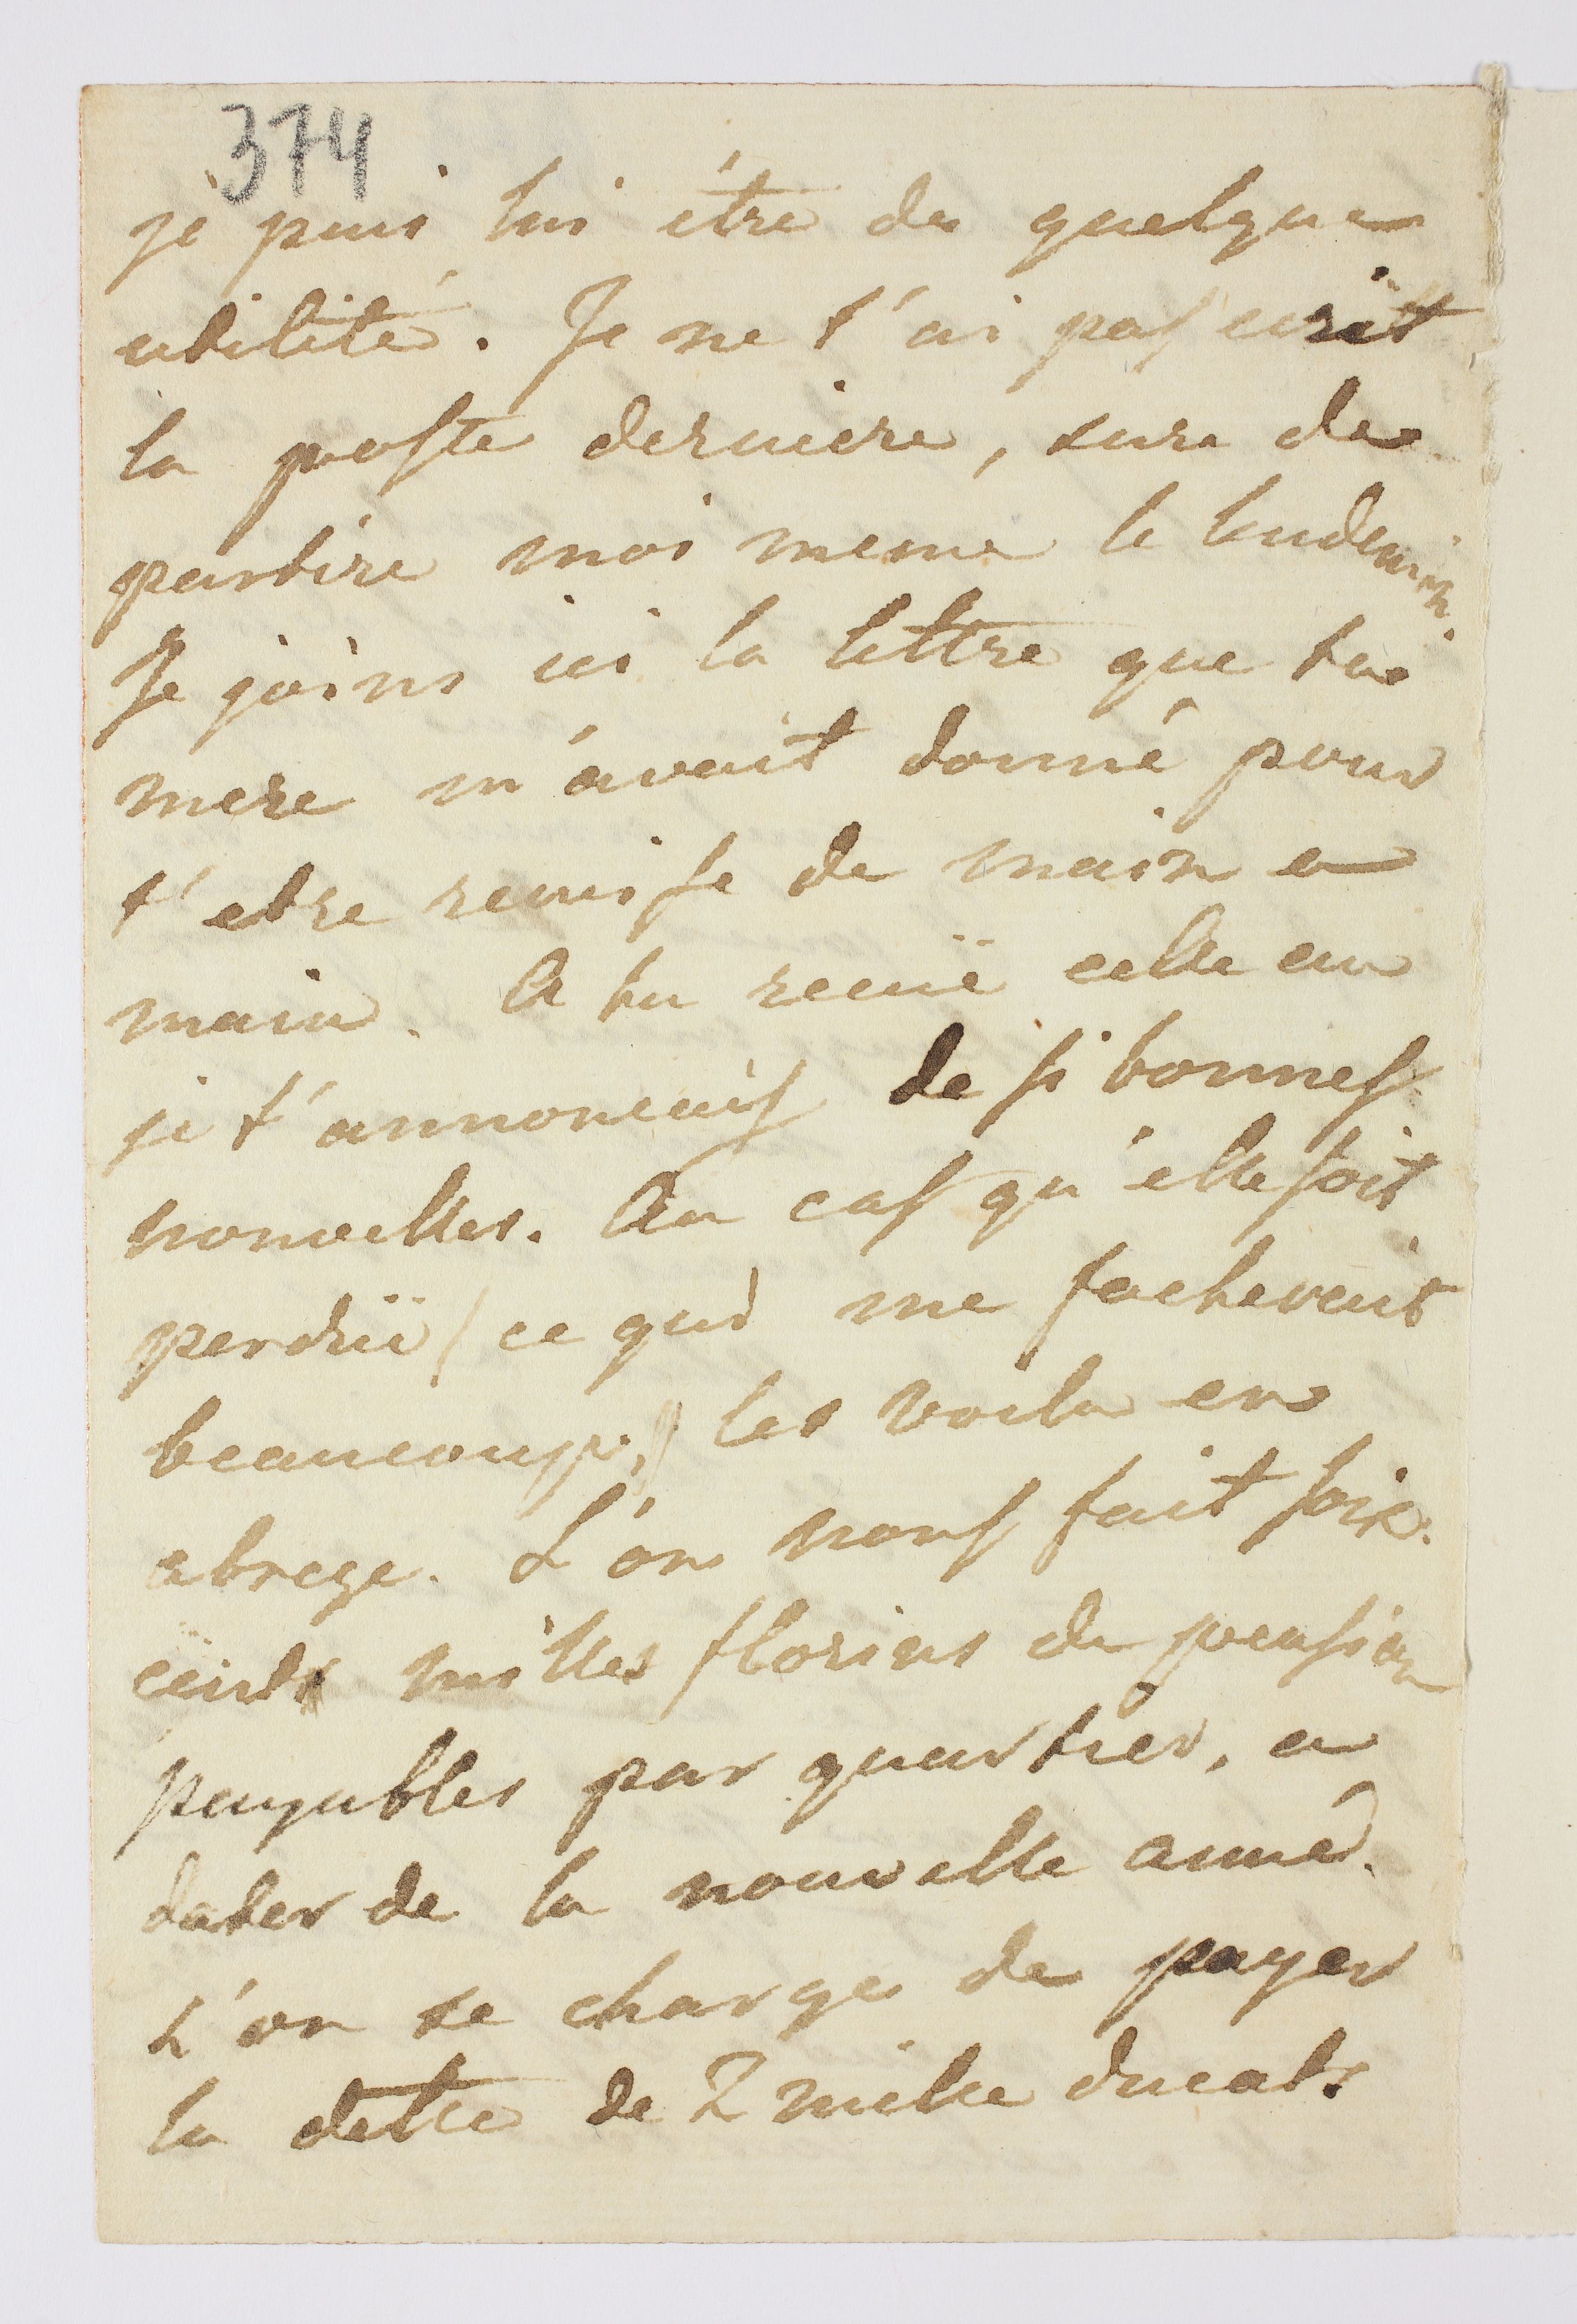 374
je puis lui être de quelque
utilité. Je ne t'ai pas ecrit
la poste derniere, sure de
partire moi meme le lendemain.
Je joins ici la lettre que ta
mere m'avait donné pour
t'etre remise de main en
main. A tu recuë celle ou
je t'annoncais de si bonnes
nouvelles. Au cas qu'elle soit
perduë (ce qui me facherait
beaucoup,) les voila en
abrege. L'on nous fait six
cents milles florins de pension
payables par quartier, a
dater de la nouvelle année.
L'on se charge de payer
la dette de 2 mille ducats